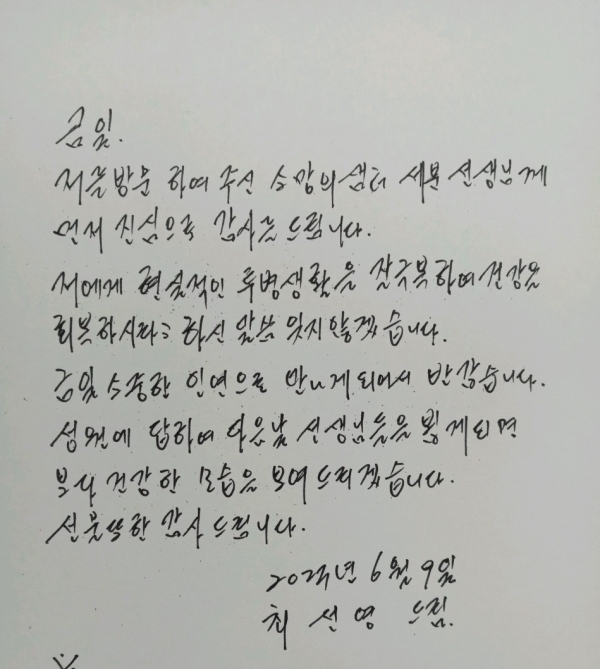 금일.
저를 방문 하여 주신 소망의샘터 세분 선생님께
먼저 진심으로 감사를 드립니다.
저에게 현실적인 투병생활을 잘극복하여 건강을
회복하시라고 하신 말씀 잊지않겠습니다.
금일 소중한 인연으로 만나게되어서 반갑습니다.
성원에 답하여 다음날 선생님들을 뵙게되면
보다 건강한 모습을 보여드리겠습니다.
선물또한 감사 드립니다.
년 6월 9일
최 선 영 드림.